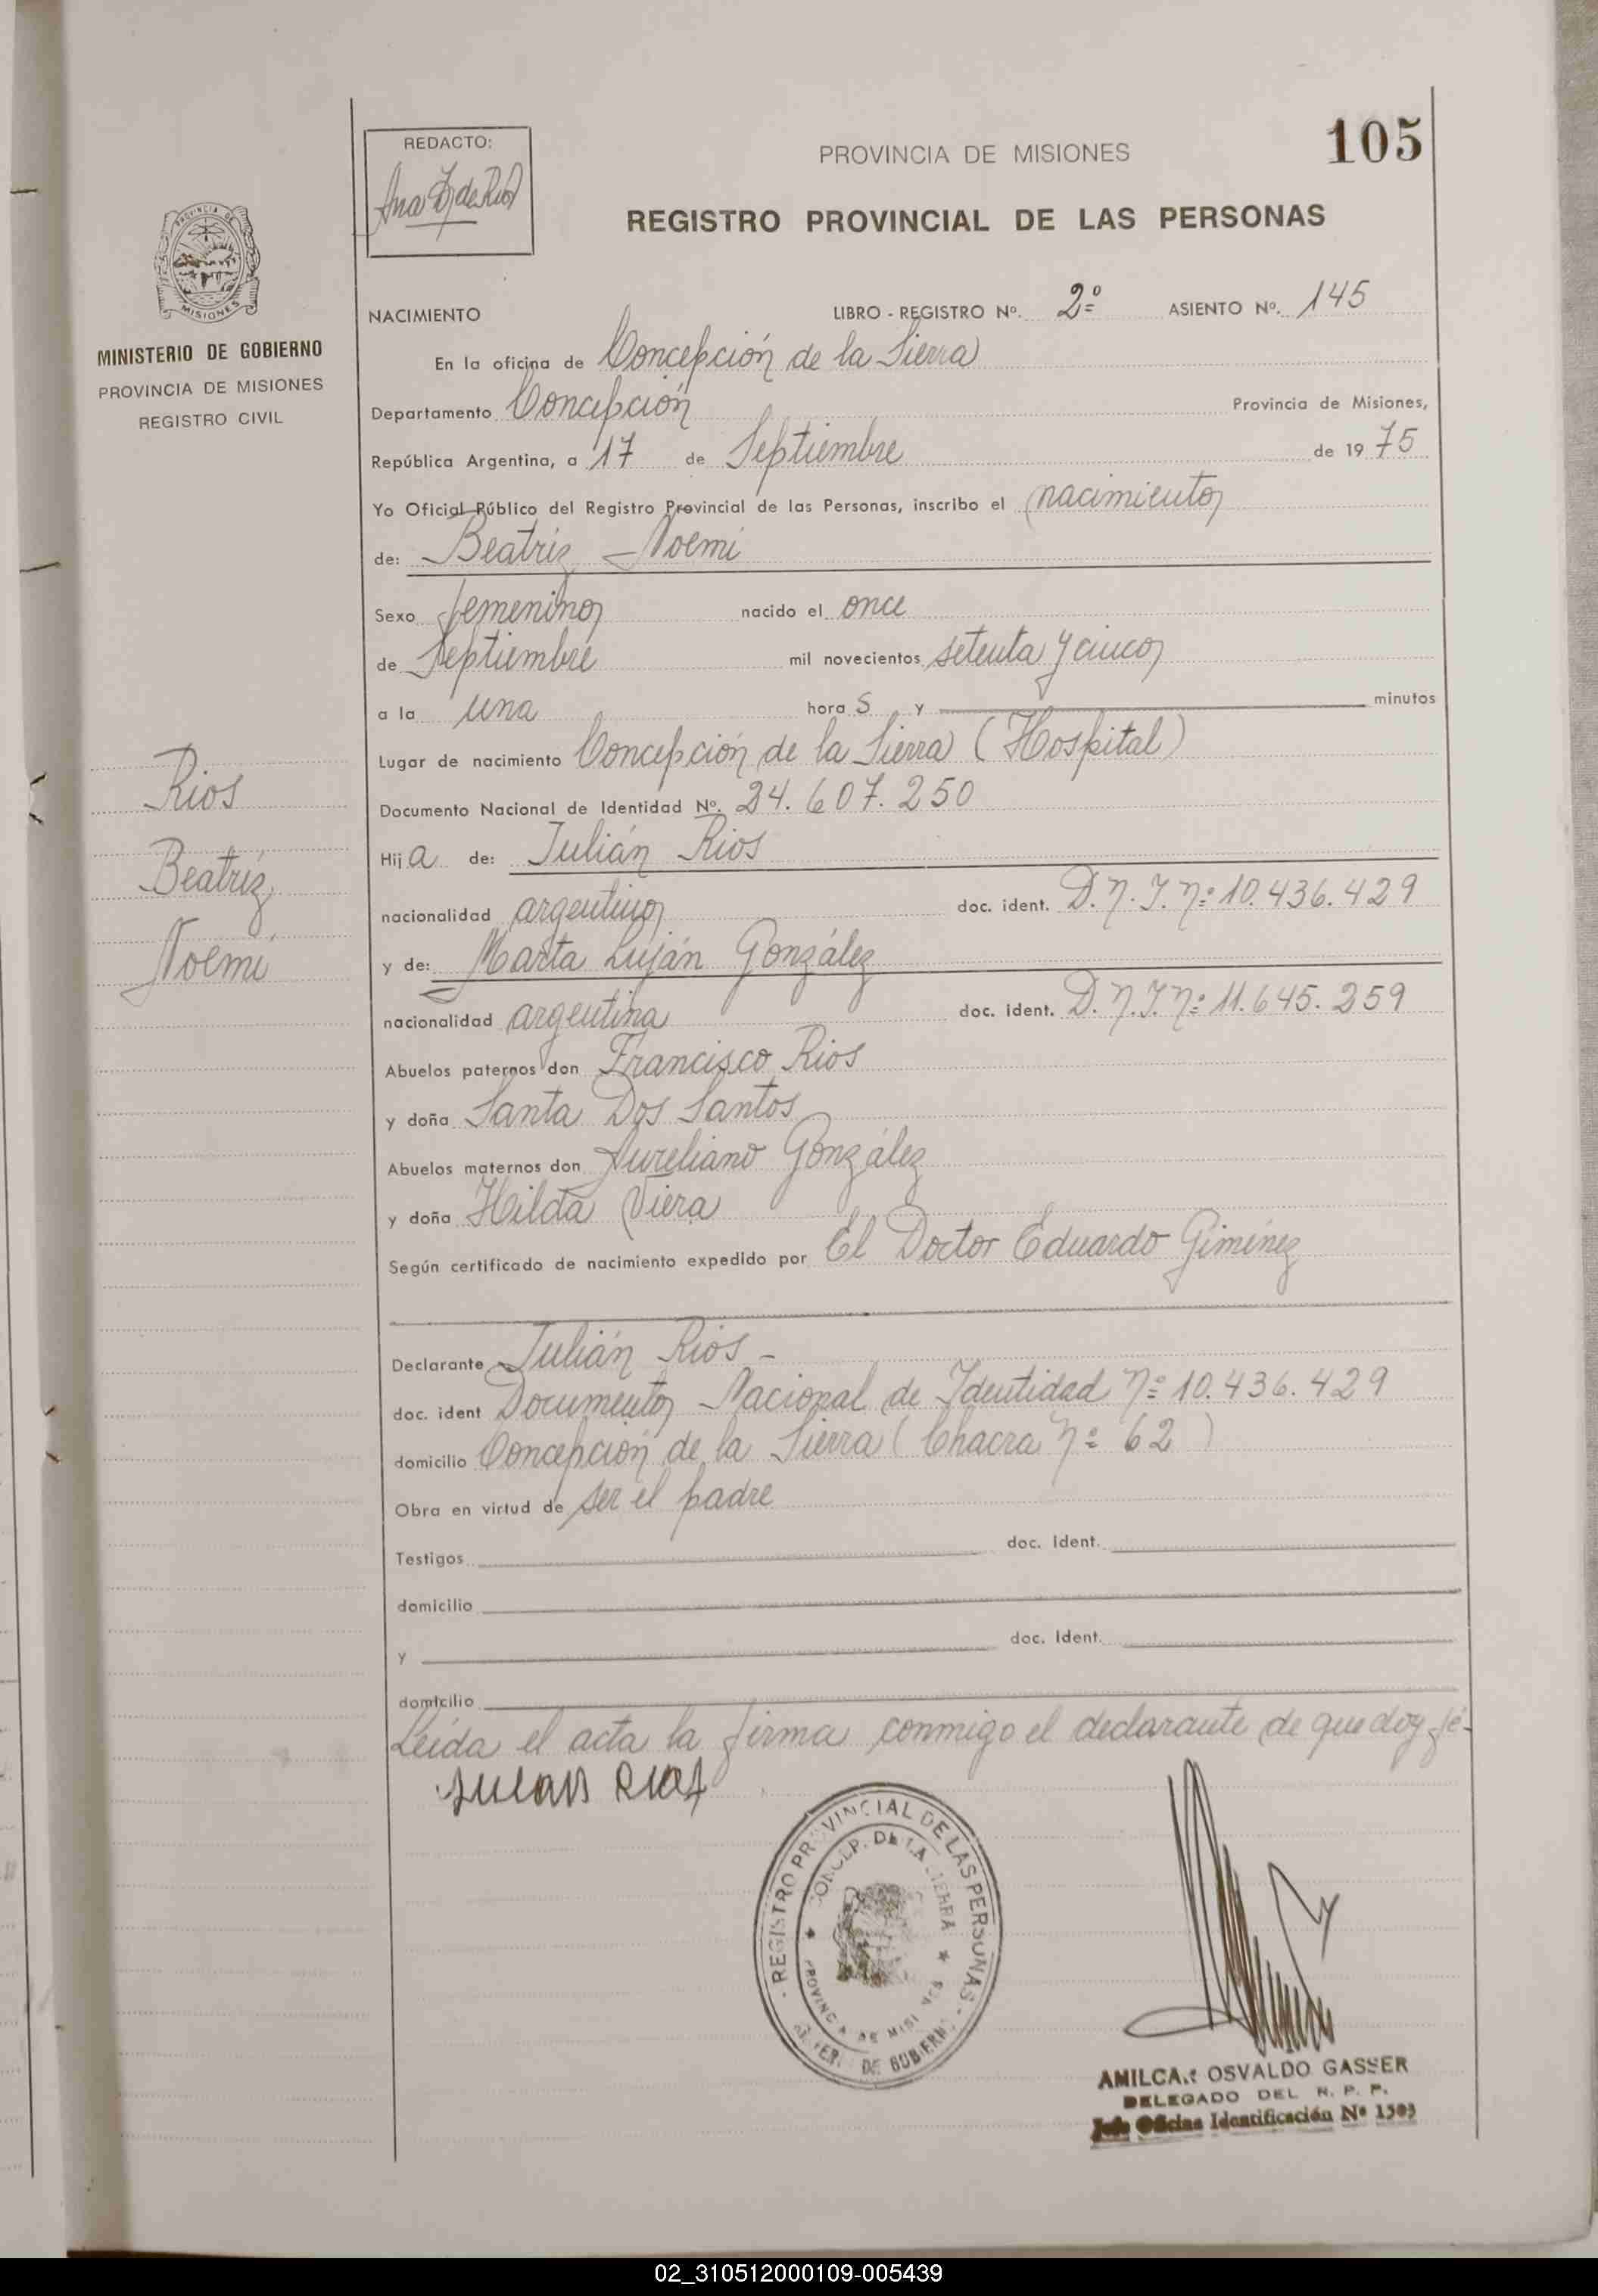 105
REDACTO:
Ana
PROVINCIA DE MISIONES
REGISTRO PROVINCIAL DE LAS PERSONAS
PROVINCIA DE
MISIONES
MINISTERIO DE GOBIERNO
PROVINCIA DE MISIONES
REGISTRO CIVIL
Rios
Beatríz
Noemi
NACIMIENTO LIBRO - REGISTRO Nº. 2º ASIENTO Nº. 145
En la oficina de Concepción de la Sierra
Departamento Concepción Provincia de Misiones,
República Argentina, a 17 de Septiembre de 1975
Yo Oficial Público del Registro Provincial de las Personas, inscribo el nacimiento
de: Beatriz Noemi
Sexo femenino nacido el once
de Septiembre mil novecientos setenta y cinco
a la una horas y minutos
Lugar de nacimiento Concepción de la Sierra (Hospital)
Documento Nacional de Identidad Nº. 24.607.250
Hija de: Julián Rios
nacionalidad argentino doc. ident. D.N.I. Nº 10.436.429
y de: Marta Luján González
nacionalidad argentina doc. ident. D.N.I. Nº 11.645.259
Abuelos paternos don Francisco Rios
y doña Santa Dos Santos
Abuelos maternos don Aureliano González
y doña Hilda Viera
Según certificado de nacimiento expedido por El Doctor Eduardo Giminez
Declarante Julián Rios -
doc. ident Documento Nacional de Identidad Nº 10.436.429
domicilio Concepción de la Sierra (Chacra Nº 62)
Obra en virtud de ser el padre
Testigos doc. Ident.
domicilio
y doc. Ident.
domicilio
Leída el acta la firma conmigo el declarante de que doy fé-
REGISTRO PROVINCIAL DE LAS PERSONAS
CONCEP. DE LA SIERRA
PROVINCIA DE MISIONES
DE GOBIERNO
AMILCAR OSVALDO GASSER
DELEGADO DEL R. P. P.
Jefe Oficina Identificación Nº 1503
02_310512000109-005439